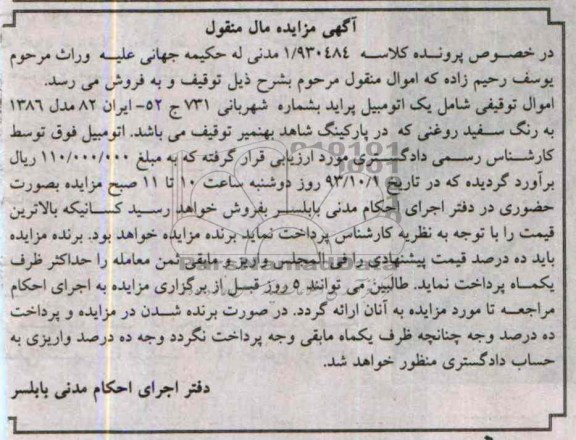 آگهی مزایده مال منقول
در خصوص پرونده کلاسه ۱/۹۳۰۴۸۴ مدنی له حکیمه جهانی علیه وراث مرحوم
یوسف رحیم زاده که اموال منقول مرحوم بشرح ذیل توقیف و به فروش می رسد.
اموال توقیفی شامل یک اتومبیل پراید بشماره شهربانی ۷۳۱ ج ۵۲- ایران ۸۲ مدل ۱۳۸۶
به رنگ سفید روغنی که در پارکینگ شاهد بهنمیر توقیف می باشد. اتومبیل فوق توسط
کارشناس رسمی دادگستری مورد ارزیابی قرار گرفته که به مبلغ ۱۱۰/۰۰۰/۰۰۰ ریال
برآورد گردیده که در تاریخ ۹۳/۱۰/۱ روز دوشنبه ساعت ۱۰ تا ۱۱ صبح مزایده بصورت
حضوری در دفتر اجرای احکام مدنی بابلسر بفروش خواهد رسید کسانیکه بالاترین
قیمت را با توجه به نظریه کارشناس پرداخت نماید برنده مزایده خواهد بود. برنده مزایده
باید ده درصد قیمت پیشنهادی را فی المجلس واریز و مابقی ثمن معامله را حداکثر ظرف
یکماه پرداخت نماید. طالبین می توانند ۵ روز قبل از برگزاری مزایده به اجرای احکام
مراجعه تا مورد مزایده به آنان ارائه گردد. در صورت برنده شدن در مزایده و پرداخت
ده درصد وجه چنانچه ظرف یکماه مابقی وجه پرداخت نگردد وجه ده درصد واریزی به
حساب دادگستری منظور خواهد شد.
دفتر اجرای احکام مدنی بابلسر